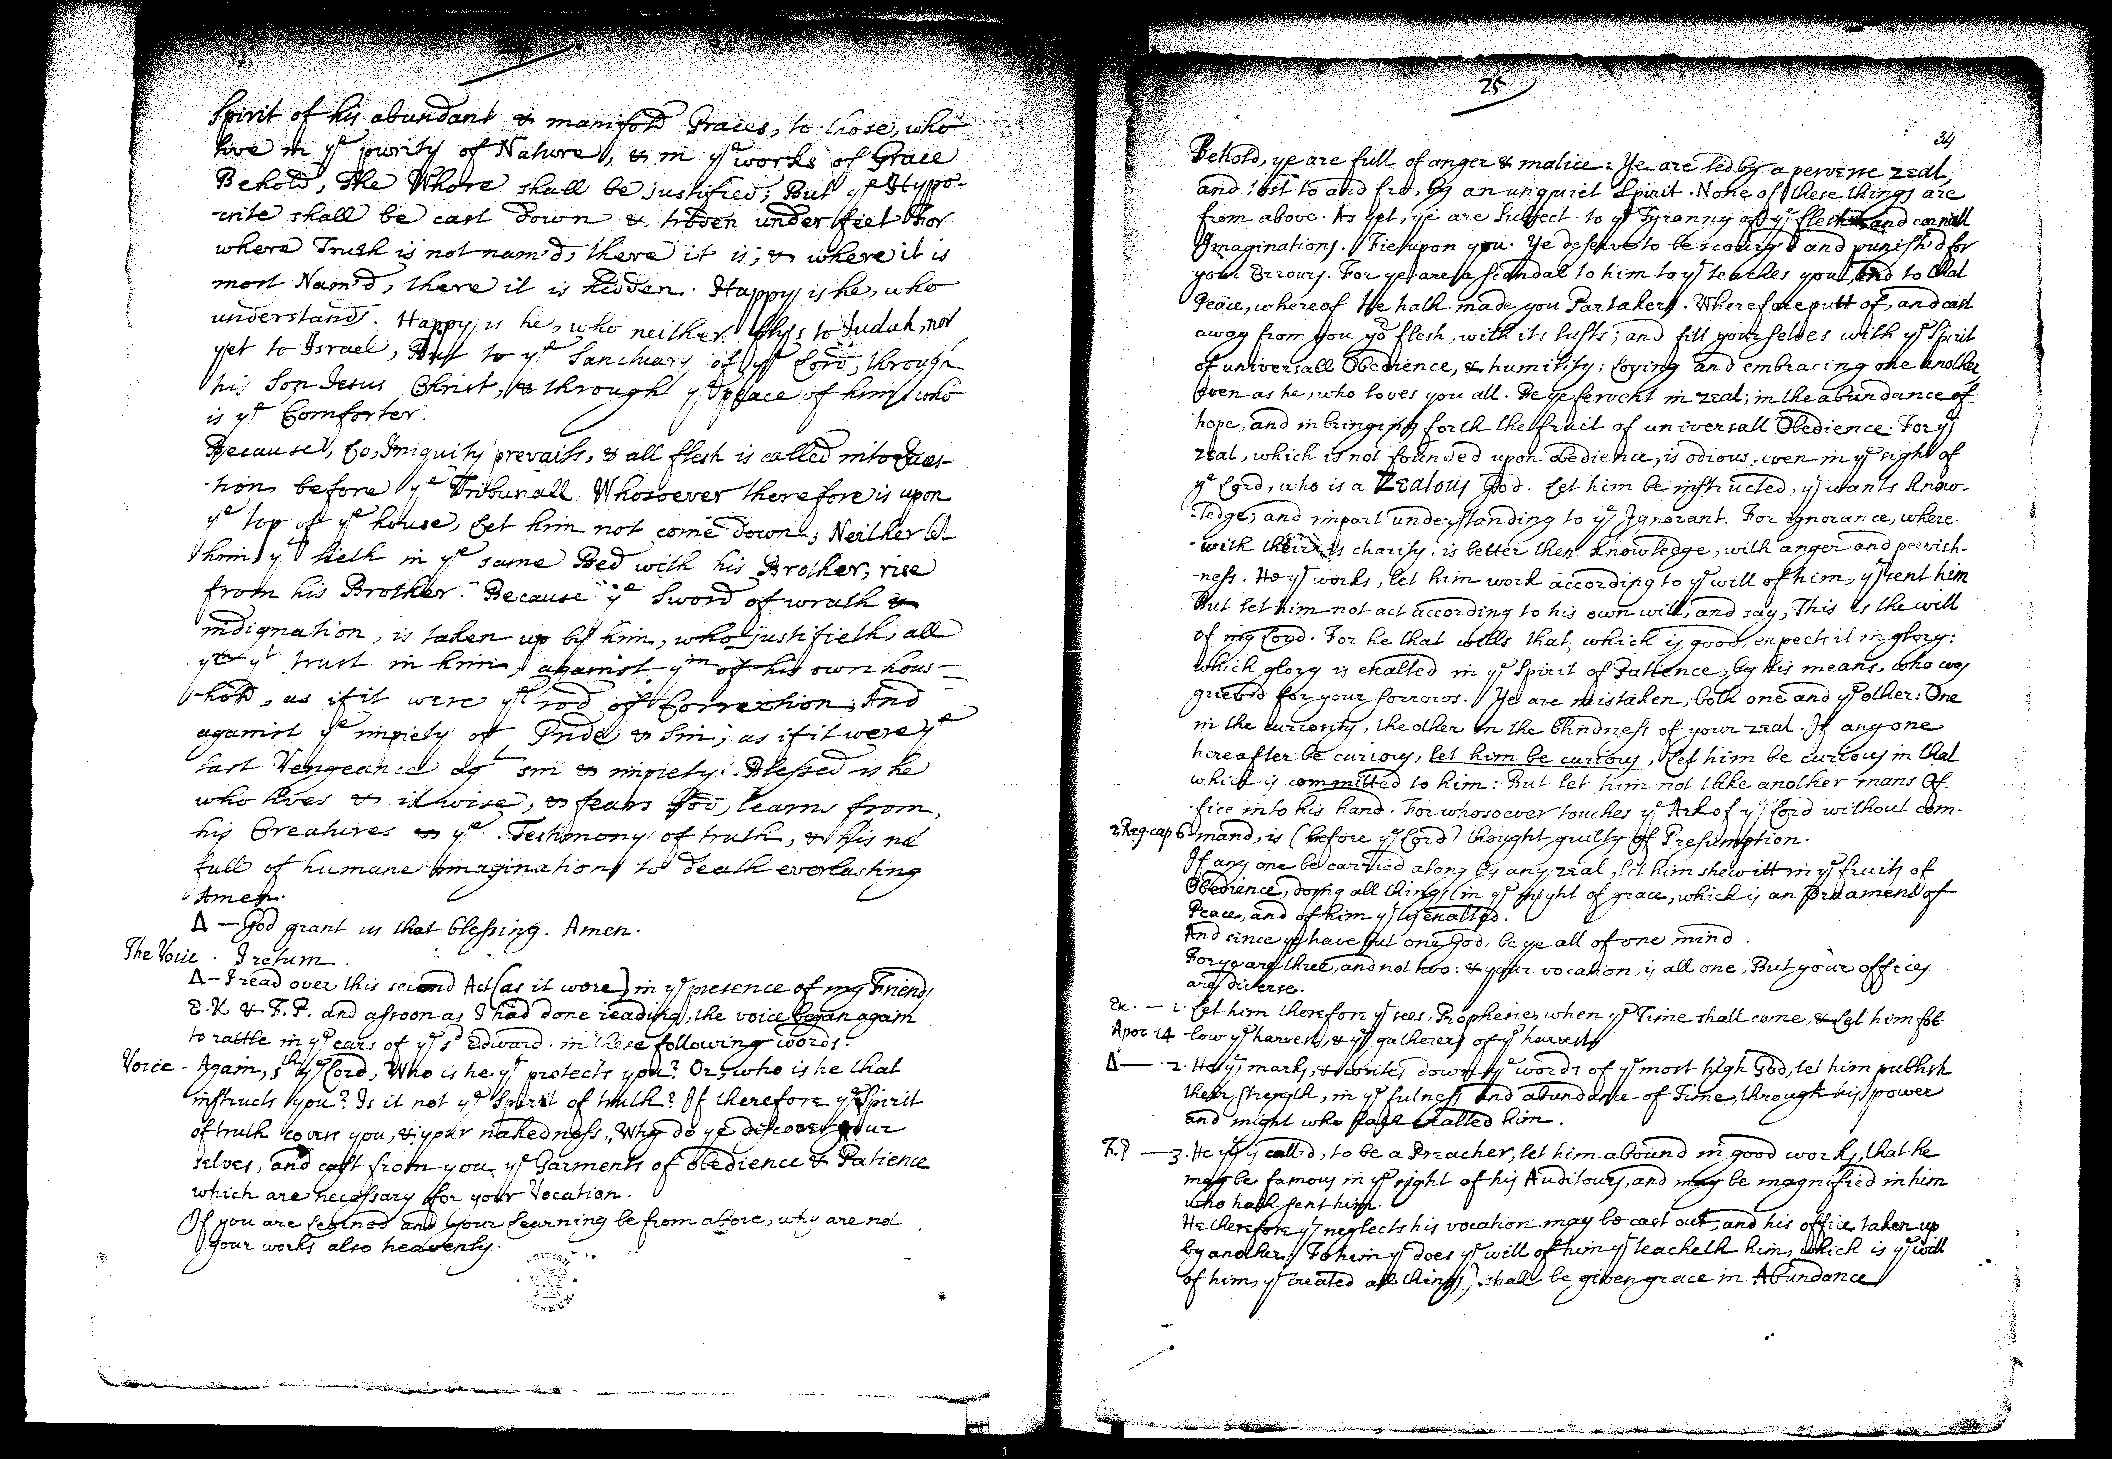 Spirit of his abundant & manifold Graces, to those, who
live in ye purity of Nature, & in ye works of Grace
Behold, The Whore shall be justified; But ye Hypo-
crite shall be cast down & troden under feet For
where Truth is not nam'd, there it is; & where it is
most Nam'd, there it is hidden. Happy is he, who
understands. Happy is he, who neither flys to Judah, nor
yet to Israel, But to ye Sanctuary of ye Lord, through
his Son Jesus Christ, & through ye peace of him who
is ye Comforter.
Because, Lo, Iniquity prevails, & all flesh is called into Ques-
tion before ye Tribunall Whosoever therefore is upon
ye top of ye house, Let him not come down; Neither let
him yt lieth in ye same Bed with his Brother, rise
from his Brother. Because ye Sword of wrath &
indignation, is taken up by him, who justifieth all
yt trust in him, against ym of his own hous-
hold, as if it were ye rod of Correction; And
against ye impiety of Pride & Sin; as if it were ye
last Vengeance agt sin & impiety. Blessed is he
who lives & is wise, & fears God, learns from
his Creatures & ye Testimony of truth, & is not
full of humane imaginations to death everlasting
Amen.
Δ — God grant us that blessing. Amen.
The Voice. I return.
Δ — I read over this second Act (as it were) in ye presence of my Friends
E.K. & F.P. and assoon as I had done reading, the voice began again
to rattle in ye ears of ye sd Edward in these following words.
Voice - Again, sth ye Lord, Who is he yt protects you? Or, who is he that
instructs you? Is it not ye Spirit of truth? If therefore ye Spirit
of truth covers you, & your nakedness, Why do ye discover your
selves, and cast from you ye Garments of obedience & Patience
which are necessary for your Vocation.
If you are learned and your learning be from above, why are not
your works also heavenly.
25
34
Behold, ye are full of anger & malice: Ye are led by a perverse zeal,
and tost to and fro, by an unquiet Spirit. None of these things are
from above. As yet, ye are Subject to ye Tyranny of ye flesh and carnall
Imaginations. Fie upon you. Ye deserve to be scourg'd and punish'd for
your Errours. For ye are a Scandal to him yt teaches you, and to that
Peace, whereof He hath made you Partakers. Wherefore putt of, and cast
away from you ye flesh, with its lusts; and fill your selves with ye Spirit
of universall Obedience, & humility; Loving and embracing one another,
Even as he, who loves you all. Be ye fervent in zeal; in the abundance of
hope, and in bringing forth the fruit of universall Obedience. For yt
zeal, which is not founded upon obedience, is odious, even in ye sight of
ye Lord, who is a Zealous God. Let him be instructed, yt wants know-
ledge; and impart understanding to ye Ignorant. For ignorance, where-
with their is charity, is better then knowledge, with anger and peevish-
ness. He yt works, let him work according to ye will of him, yt sent him
But let him not act according to his own will, and say, This is the will
of my Lord. For he that wills that, which is good, expects it in glory:
which glory is exalted in ye Spirit of Patience, by his means, who was
grieved for your sorrows. Ye are mistaken, both one and ye other: One
in the curiosity, the other in the blindness of your zeal. If any one
hereafter be curious, let him be curious, Let him be curious in that
which is committed to him: But let him not take another mans Of-
fice into his hand. For whosoever touches ye Ark of ye Lord without com-
2 Reg. cap 6 mand, is (before ye Lord) thought guilty of Presumption.
If any one be carried along by any zeal, let him shew itt in ye fruits of
Obedience, doing all things in ye might of grace, which is an Ornament of
Peace, and of him yt is exalted.
And since ye have but one God, be ye all of one mind.
For ye are three, and not two: & your vocation, is all one, But your offices
are diverse.
EK. — 1. Let him therefore yt sees, Prophesie, when ye Time shall come, & Let him fol-
Apoc 14 low ye harvest, & ye gatherers of ye harvest
Δ — 2. He yt marks, & writes down ye words of ye most high God, let him publish
their strength, in ye fulness and abundance of Time, through his power
and might who hath exalted him.
F.P — 3. He yt is called, to be a Preacher, let him abound in good works, that he
may be famous in ye sight of his Auditours, and may be magnified in him
who hath sent him.
He therefore yt neglects his vocation may be cast out, and his office taken up
by another. To him yt does ye will of him yt teacheth him, which is ye will
of him, yt created all things, shall be given grace in Abundance